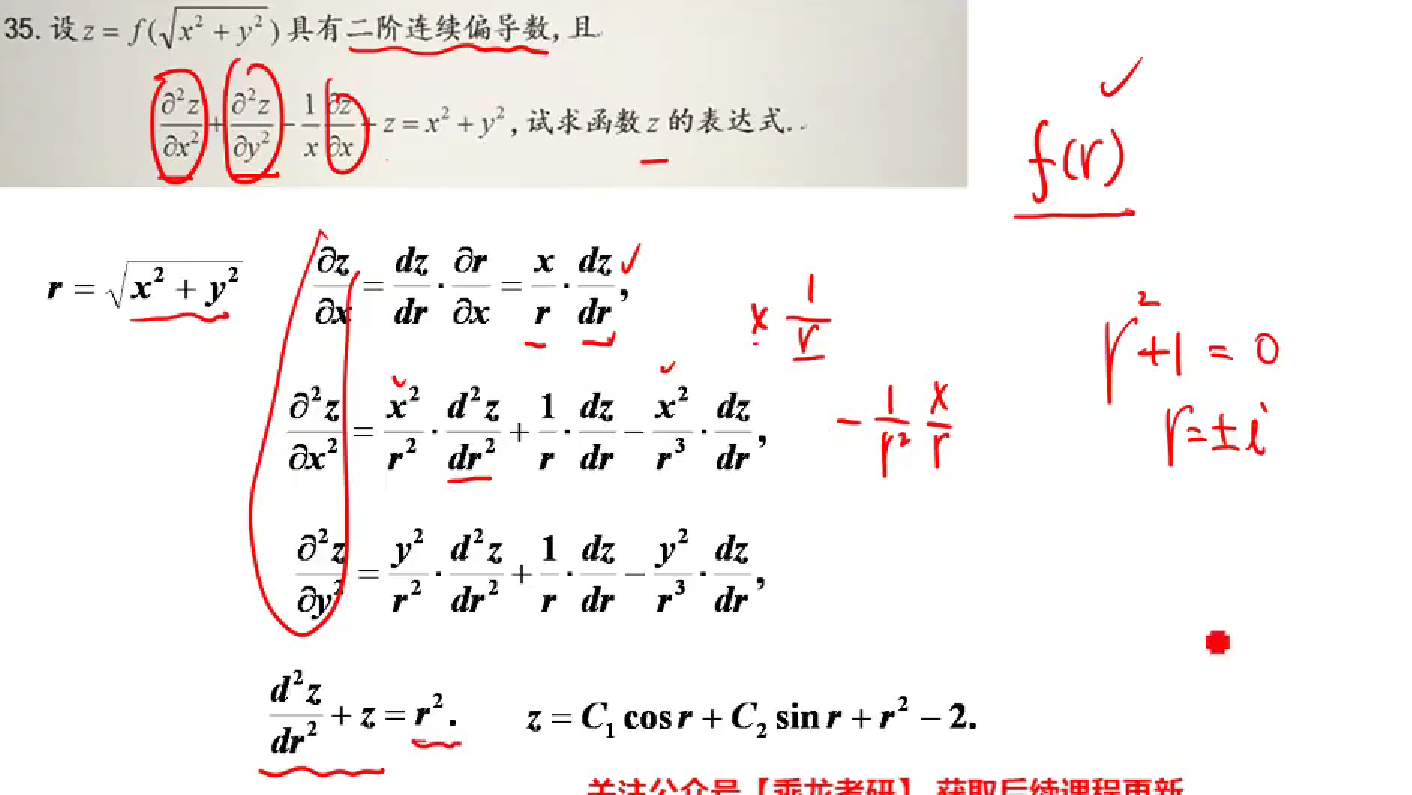 35. 设 z = f(√(x² + y²)) 具有二阶连续偏导数, 且
∂²z/∂x² + ∂²z/∂y² − 1/x ∂z/∂x + z = x² + y², 试求函数 z 的表达式.
f(r)
r = √(x² + y²)
∂z/∂x = dz/dr · ∂r/∂x = x/r · dz/dr,
x 1/r
r² + 1 = 0
∂²z/∂x² = x²/r² · d²z/dr² + 1/r · dz/dr − x²/r³ · dz/dr,
− 1/r² x/r
r = ±i
∂²z/∂y² = y²/r² · d²z/dr² + 1/r · dz/dr − y²/r³ · dz/dr,
d²z/dr² + z = r². z = C₁ cos r + C₂ sin r + r² − 2.
关注公众号【乘龙考研】 获取后续课程更新